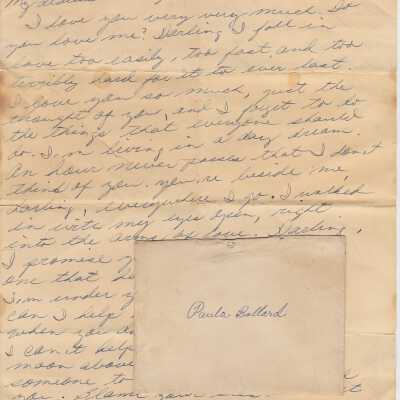 I love you very very much. Do
you love me? Darling I fall in
love too easily, too fast and too
terribly hard for it to ever last.
I love you so much, just the
thought of you, and I forget to do
the things that everyone should
do. I,m living in a day dream.
An hour never passes that I don,t
think of you. you,re beside me,
darling, everywhere I go. I walked
in with my eyes open, right
into the arms of love. Darling,
I promise
one that
I,m under
can I help
when you
I can,t help
moon above
someone to
you. Blame your
Paula Bollard